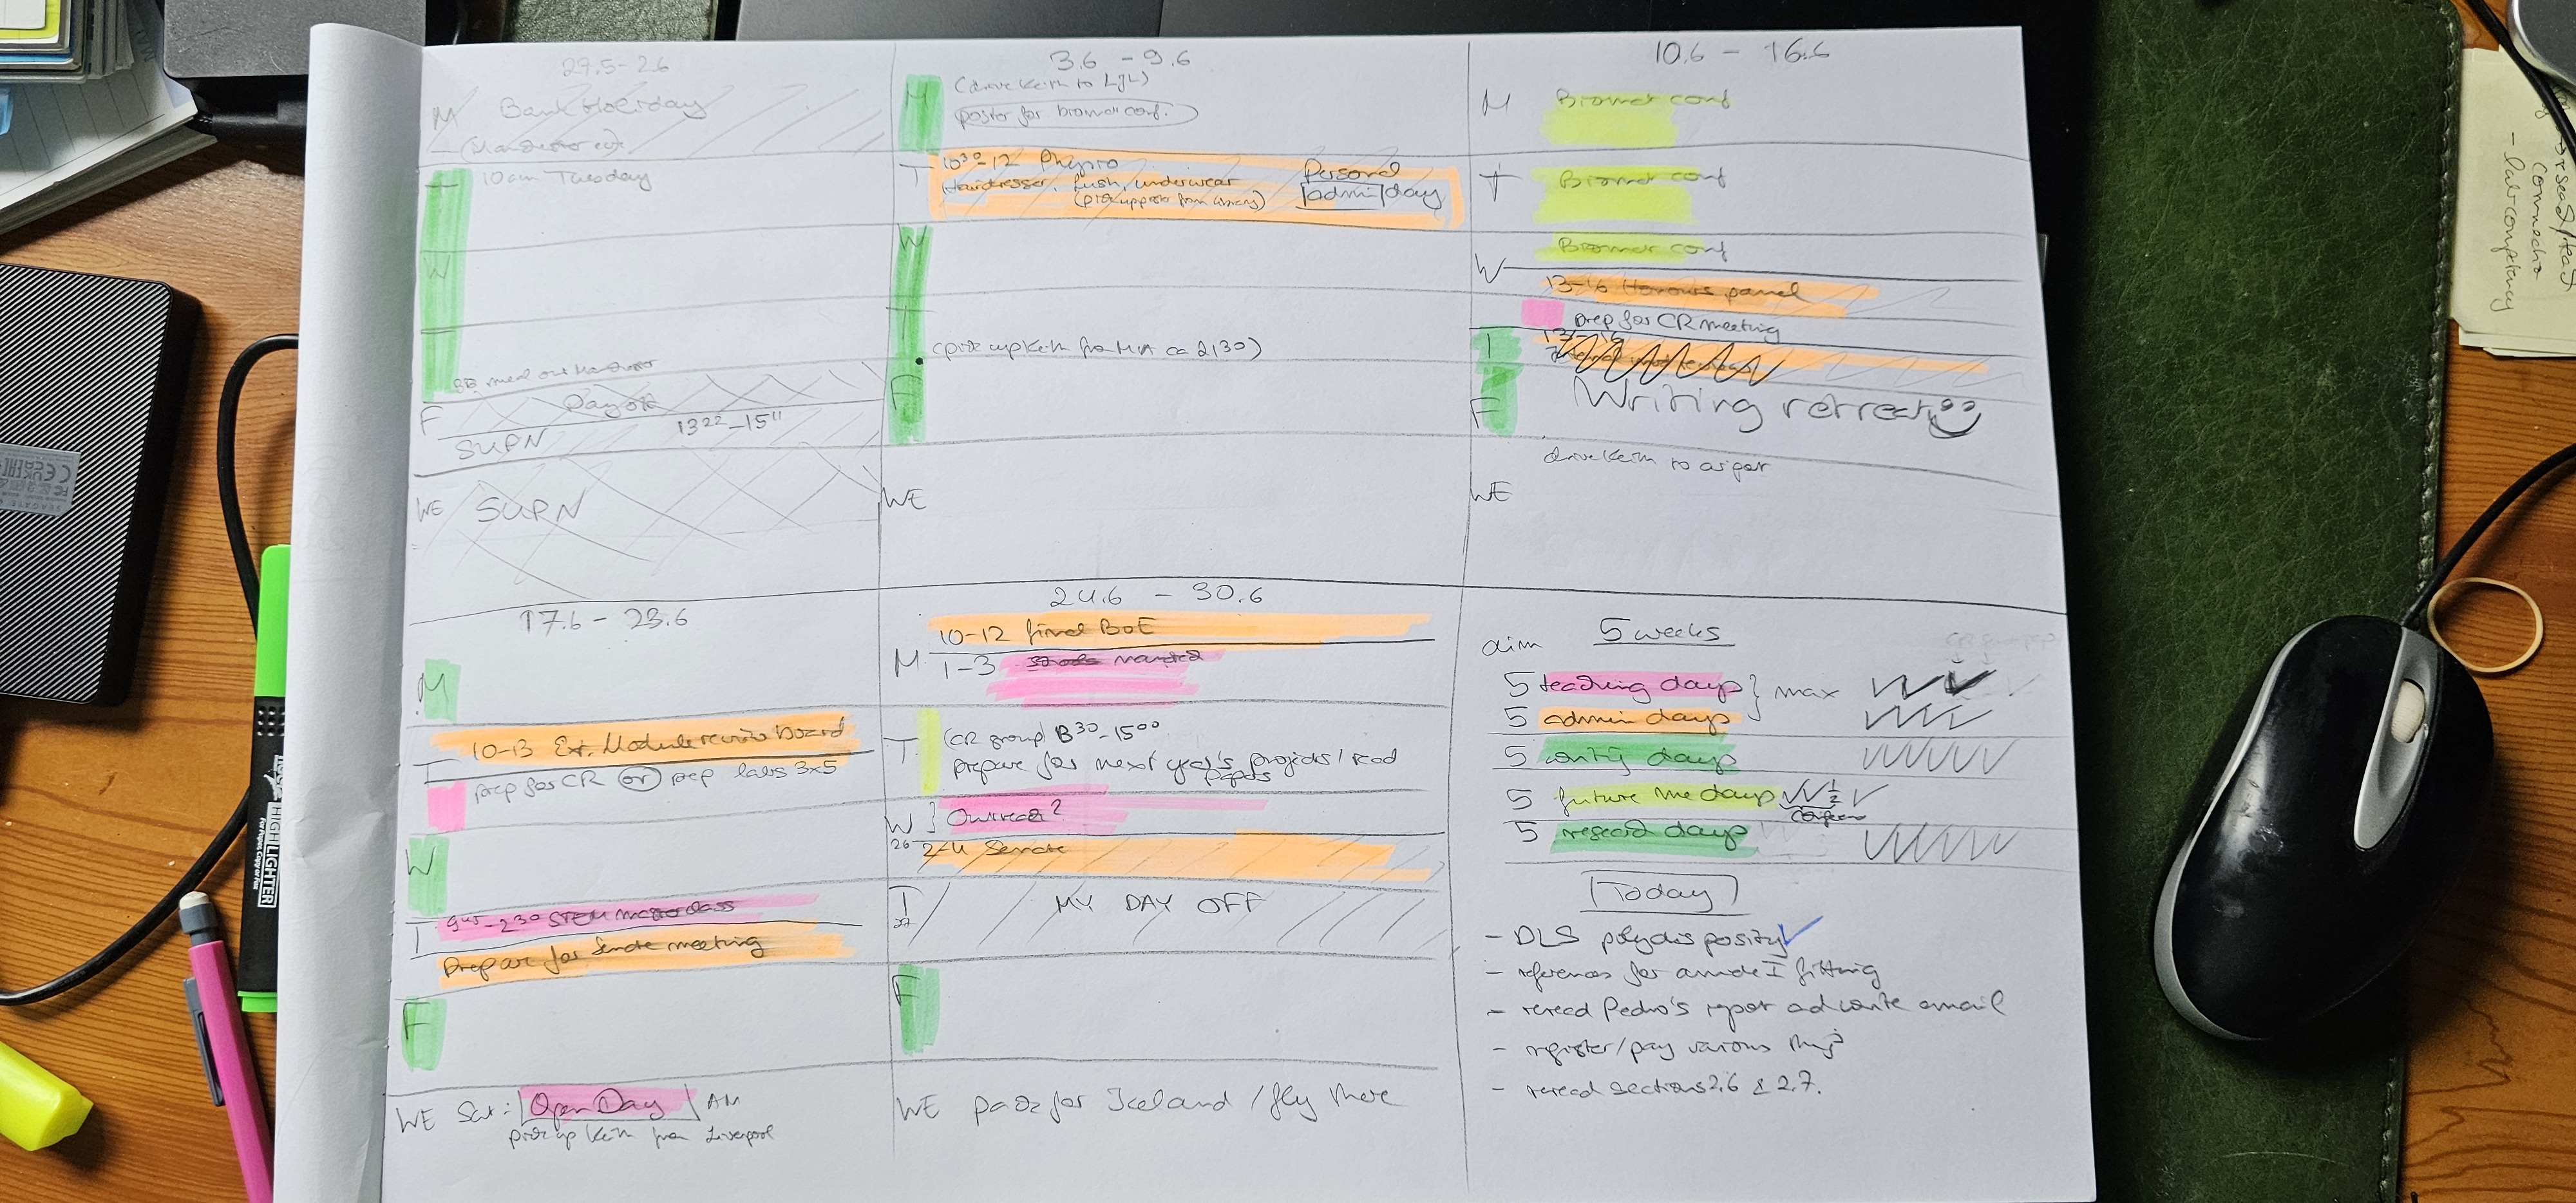 27.5 - 2.6
M Bank Holiday
T 10am Tuesday
W
meal out
F Day off
SUPN 13²²-15¹¹
WE SUPN
3.6 - 9.6
M (drive Keith to LJL)
poster for biomet conf.
T 10³⁰-12 Physio Personal
Hairdresser, Lush, underwear |admin|day
(pick up poster from library)
W
T
(pick up Keith from M/A ca 2130)
F
WE
10.6 - 16.6
M Biomet conf
T Biomet conf
Biomet conf
W
13-16 Honours panel
prep for CR meeting
T
F Writing retreat
drive Keith to airport
WE
17.6 - 23.6
M
10-13 Ext. Module review board
T
prep for CR or prep labs 3x5
W
9⁴⁵-2³⁰ STEM masterclass
T
Prepare for Senate meeting
F
WE Sat: Open Day AM
pick up Keith from Liverpool
24.6 - 30.6
10-12 final BoE
M 1-3
T (CR group) 13³⁰-15⁰⁰
prepare for next year's projects / read
papers
W Outreach?
26 2-4 Senate
T MY DAY OFF
27
F
WE pack for Iceland / fly there
aim 5 weeks
5 teaching days } max
5 admin days
5 writing days
5 future me days ½
conference
5 research days
Today
- DLS polydisposity
- references for amide I fitting
- reread Pedro's report and write email
- register/pay various things
- reread sections 2.6 & 2.7.
HIGHLIGHTER
- lab competency